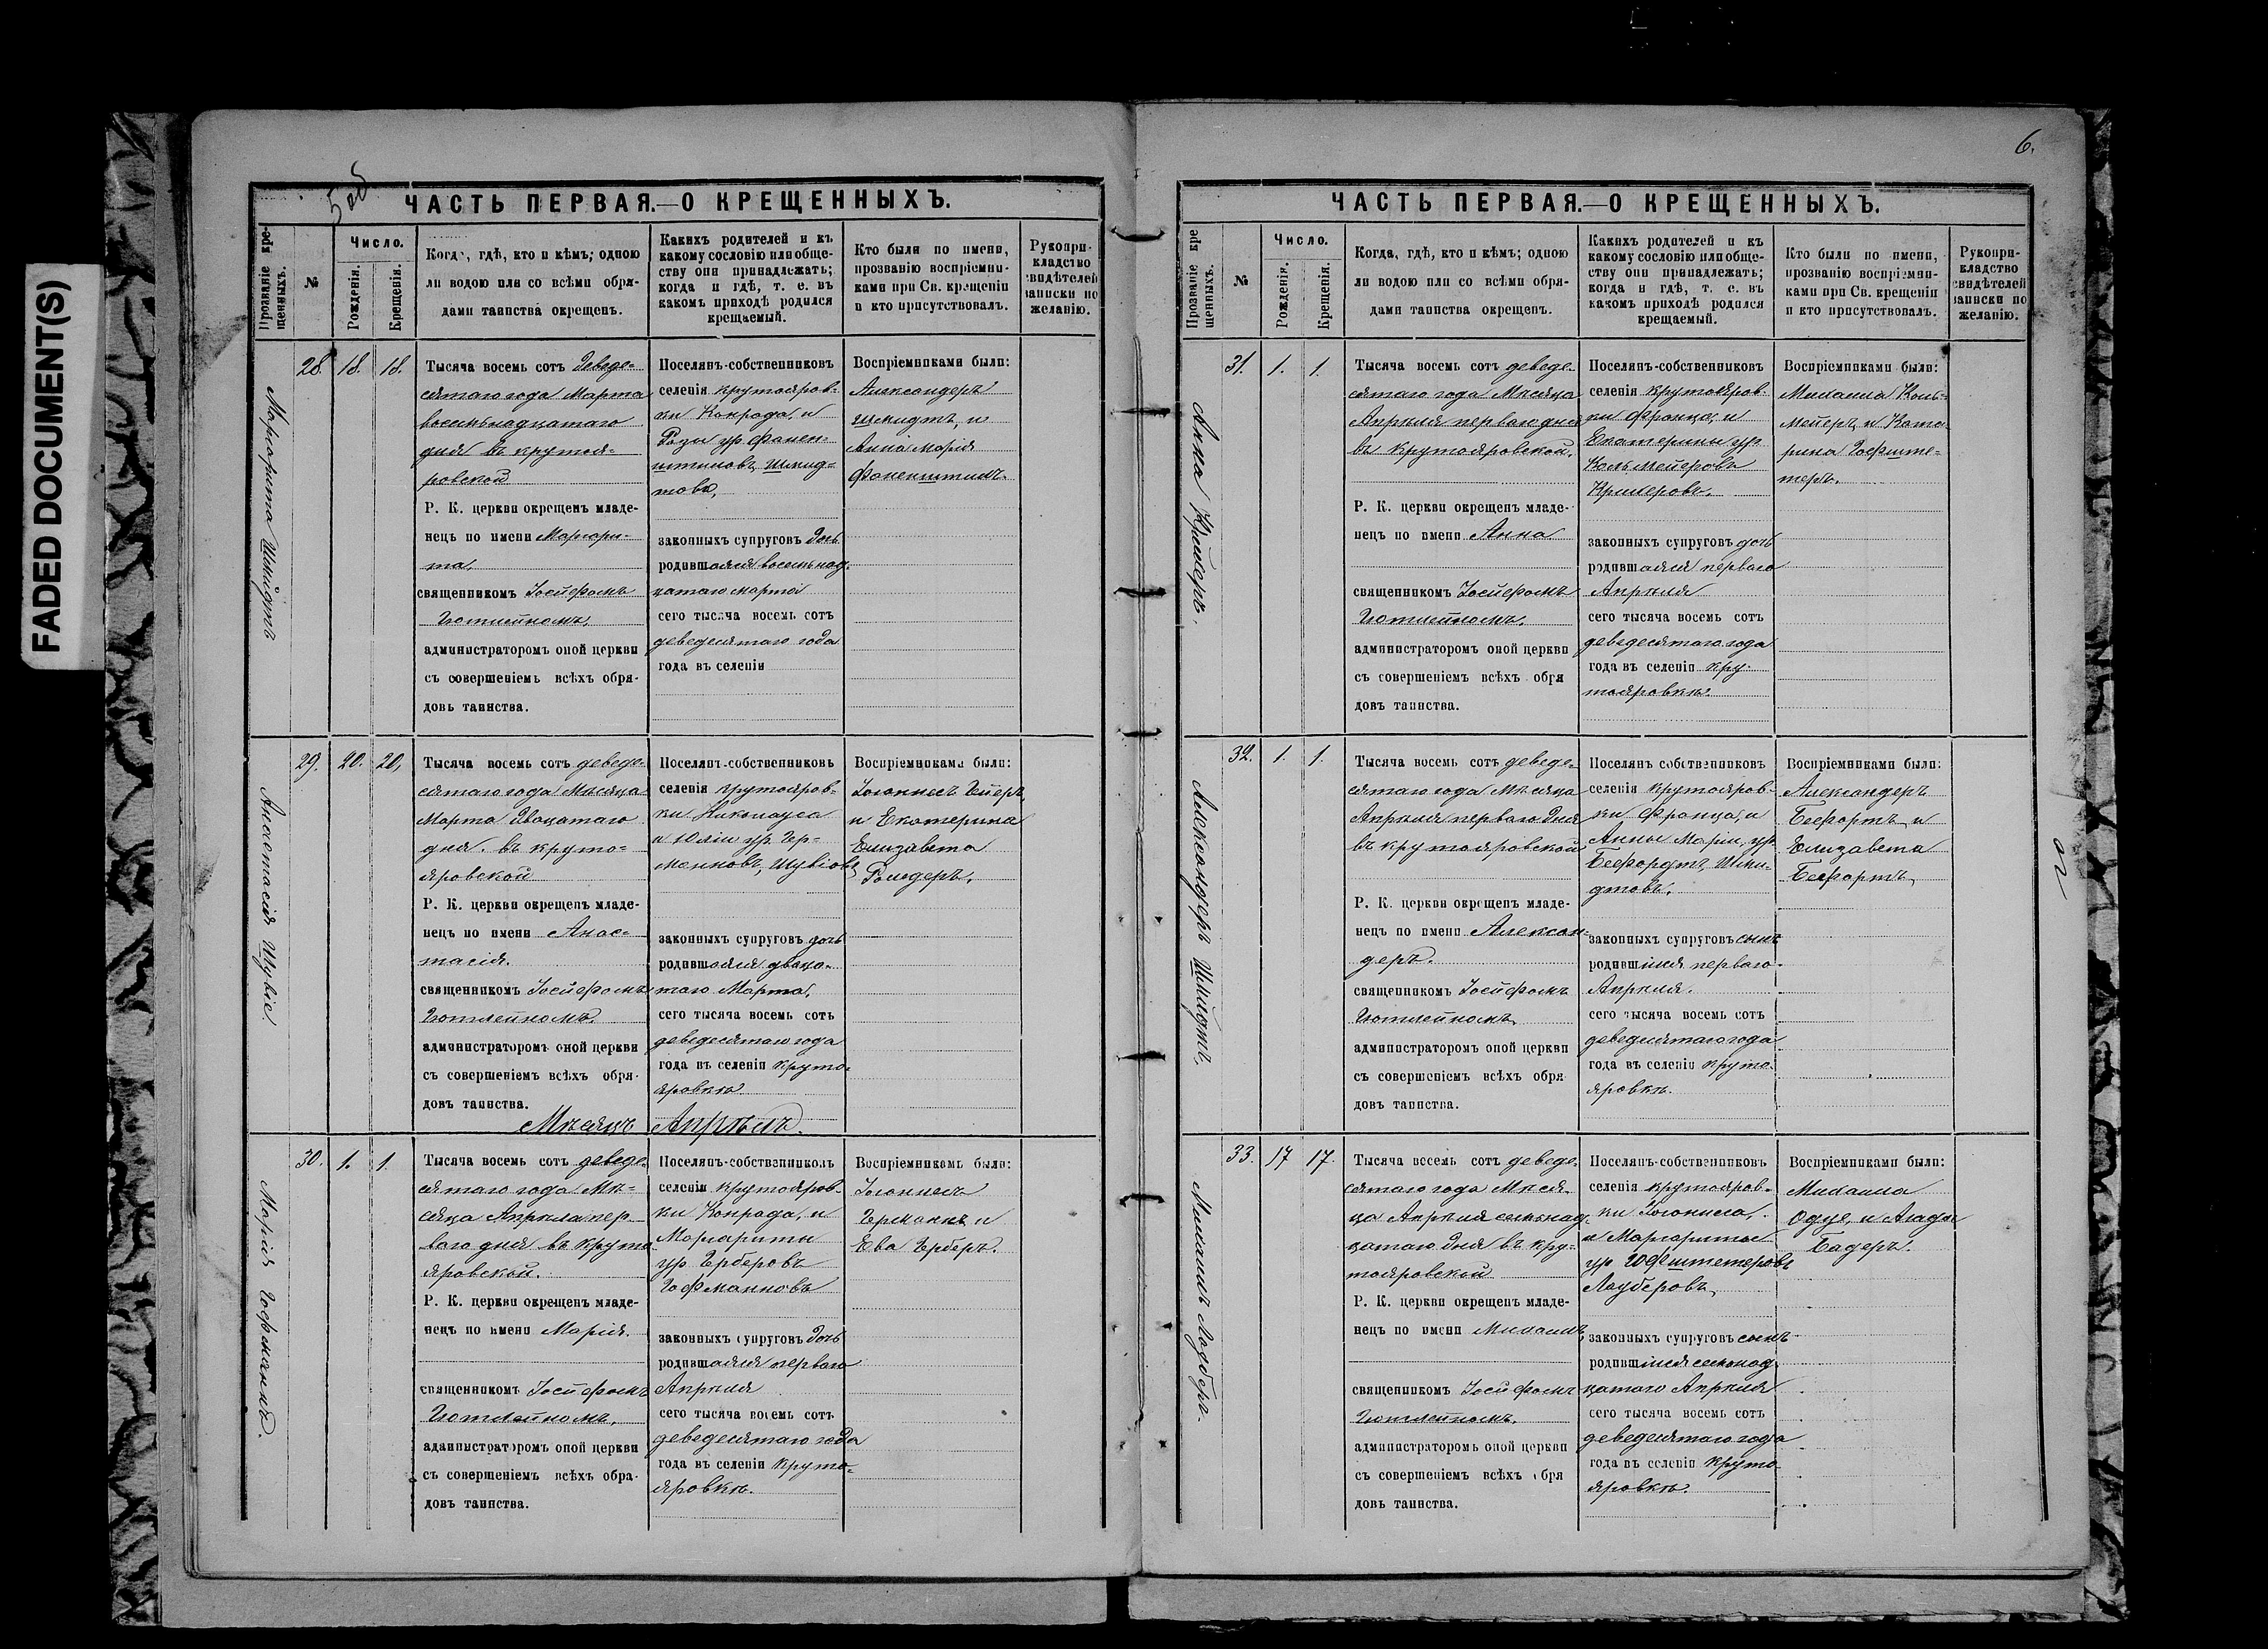 FADED DOCUMENT(S)
5 об
ЧАСТЬ ПЕРВАЯ.—О КРЕЩЕННЫХЪ.
Прозваніе кре-
щенныхъ.
№
Число.
Рожденія.
Крещенія.
Когда, гдѣ, кто и кѣмъ; одною
ли водою или со всѣми обря-
дами таинства окрещенъ.
Какихъ родителей и къ
какому сословію или обще-
ству они принадлежатъ;
когда и гдѣ, т. е. въ
какомъ приходѣ родился
крещаемый.
Кто были по имени,
прозванію воспріемни-
ками при Св. крещеніи
и кто присутствовалъ.
Рукопри-
кладство
свидѣтелей
записки по
желанію.
Маргарита Шмидтъ
28. 18. 18.
Тысяча восемь сотъ деведе-
сятаго года Марта
восемьнадцатаго
дня въ крутоя-
ровской
Р. К. церкви окрещенъ младе-
нецъ по имени Маргари-
та,
священникомъ Іосифомъ
Готлейномъ,
администраторомъ оной церкви
съ совершеніемъ всѣхъ обря-
довъ таинства.
Поселянъ-собственниковъ
селенія крутояров-
ки Конрада, и
Розы ур. Фанен-
штиловъ, Шмид-
това,
законныхъ супруговъ дочь
родившаяся восемьнад-
цатаго марта
сего тысяча восемь сотъ
деведесятаго года
года въ селеніи
Воспріемниками были:
Александеръ
Шмидтъ, и
Анна марія
Фаненштилъ.
Анастасія Шувіе
29. 20. 20,
Тысяча восемь сотъ деведе-
сятаго года Мѣсяца
Марта двацатаго
дня. въ круто-
яровской
Р. К. церкви окрещенъ младе-
нецъ по имени Анас-
тасія.
священникомъ Іосифомъ
Готлейномъ.
администраторомъ оной церкви
съ совершеніемъ всѣхъ обря-
довъ таинства.
Поселянъ-собственниковъ
селенія крутояров-
ки Николауса
и Юліи ур. Гер-
манковъ, Шувіовъ,
законныхъ супруговъ дочь
родившаяся двaца-
таго Марта,
сего тысяча восемь сотъ
деведесятаго года
года въ селеніи круто-
яровкѣ.
Воспріемниками были:
Іоаннесъ Гейеръ,
и Екатерина
Елизавета
Роледеръ.
Мѣсяцъ Апрѣль.
Марія Гофманнъ.
30. 1. 1.
Тысяча восемь сотъ деведе-
сятаго года Мѣ-
сяца Апрѣла пер-
ваго дня въ круто
яровской.
Р. К. церкви окрещенъ младе-
нецъ по имени Марія.
священникомъ Іосифомъ
Готлейномъ,
администраторомъ оной церкви
съ совершеніемъ всѣхъ обря-
довъ таинства.
Поселянъ-собственниковъ
селенія крутояров-
ки Конрада, и
Маргариты
ур Герберовъ
Гофманновъ
законныхъ супруговъ дочь
родившаяся перваго
Апрѣля
сего тысяча восемь сотъ
деведесятаго года
года въ селеніи круто-
яровкѣ.
Воспріемниками были:
Іоаннесъ
Германнъ и
Ева Герберъ.
6.
ЧАСТЬ ПЕРВАЯ.—О КРЕЩЕННЫХЪ.
Прозваніе кре
щенныхъ.
№
Число.
Рожденія.
Крещенія.
Когда, гдѣ, кто и кѣмъ; одною
ли водою или со всѣми обря-
дами таинства окрещенъ.
Какихъ родителей и къ
какому сословію или обще-
ству они принадлежатъ;
когда и гдѣ, т. е. въ
какомъ приходѣ родился
крещаемый.
Кто были по имени,
прозванію воспріемни-
ками при Св. крещеніи
и кто присутствовалъ.
Рукопри-
кладство
свидѣтелей
записки по
желанію.
Анна
31. 1. 1.
Тысяча восемь сотъ деведе-
сятаго года Мѣсяца
Апрѣля перваго дня
въ крутояровской.
Р. К. церкви окрещенъ младе-
нецъ по имени Анна
священникомъ Іосифомъ
Готлейномъ.
администраторомъ оной церкви
съ совершеніемъ всѣхъ обря
довъ таинства.
Поселянъ-собственниковъ
селенія крутояров-
ки Франца, и
Екатерины ур
Кольмейеровъ
законныхъ супруговъ дочь
родившаяся перваго
Апрѣля
сего тысяча восемь сотъ
деведесятаго года
года въ селеніи кру-
тояровкѣ.
Воспріемниками были:
Михаилъ Коль-
мейеръ, и Ката
рина Гофште-
теръ.
Александеръ Шмидтъ.
32. 1. 1.
Тысяча восемь сотъ деведе-
сятаго года Мѣсяца
Апрѣля перваго дня
въ крутояровской
Р. К. церкви окрещенъ младе-
нецъ по имени Алексан-
деръ.
священникомъ Іосифомъ
Готлейномъ,
администраторомъ оной церкви
съ совершеніемъ всѣхъ обря
довъ таинства.
Поселянъ собственниковъ
селенія крутояров-
ки Франца, и
Анны Маріи, ур
Бефордтъ, Шми-
дтовъ.
законныхъ супруговъ сынъ
родившійся перваго
Апрѣля.
сего тысяча восемь сотъ
деведесятаго года
года въ селеніи круто-
яровкѣ.
Воспріемниками были:
Александеръ
Бефортъ, и
Елизавета
Бефортъ,
Михаилъ Лауберъ.
33. 17 17.
Тысяча восемь сотъ деведе-
сятаго года Мѣся-
ца Апрѣля семьнад-
цатаго дня въ кру-
тояровской
Р. К. церкви окрещенъ младе-
нецъ по имени Михаилъ,
священникомъ Іосифомъ
Готлейномъ,
администраторомъ оной церкви
съ совершеніемъ всѣхъ обря
довъ таинства.
Поселянъ-собственниковъ
селенія крутояров-
ки Іоганнеса,
и Маргариты
ур Гофештетеровъ
Лауберовъ,
законныхъ супруговъ сынъ
родившійся семьнад-
цатаго Апрѣля
сего тысяча восемь сотъ
деведесятаго года
года въ селеніи круто-
яровкѣ.
Воспріемниками были:
Михаилъ
Одуе, и Агада
Бадеръ.